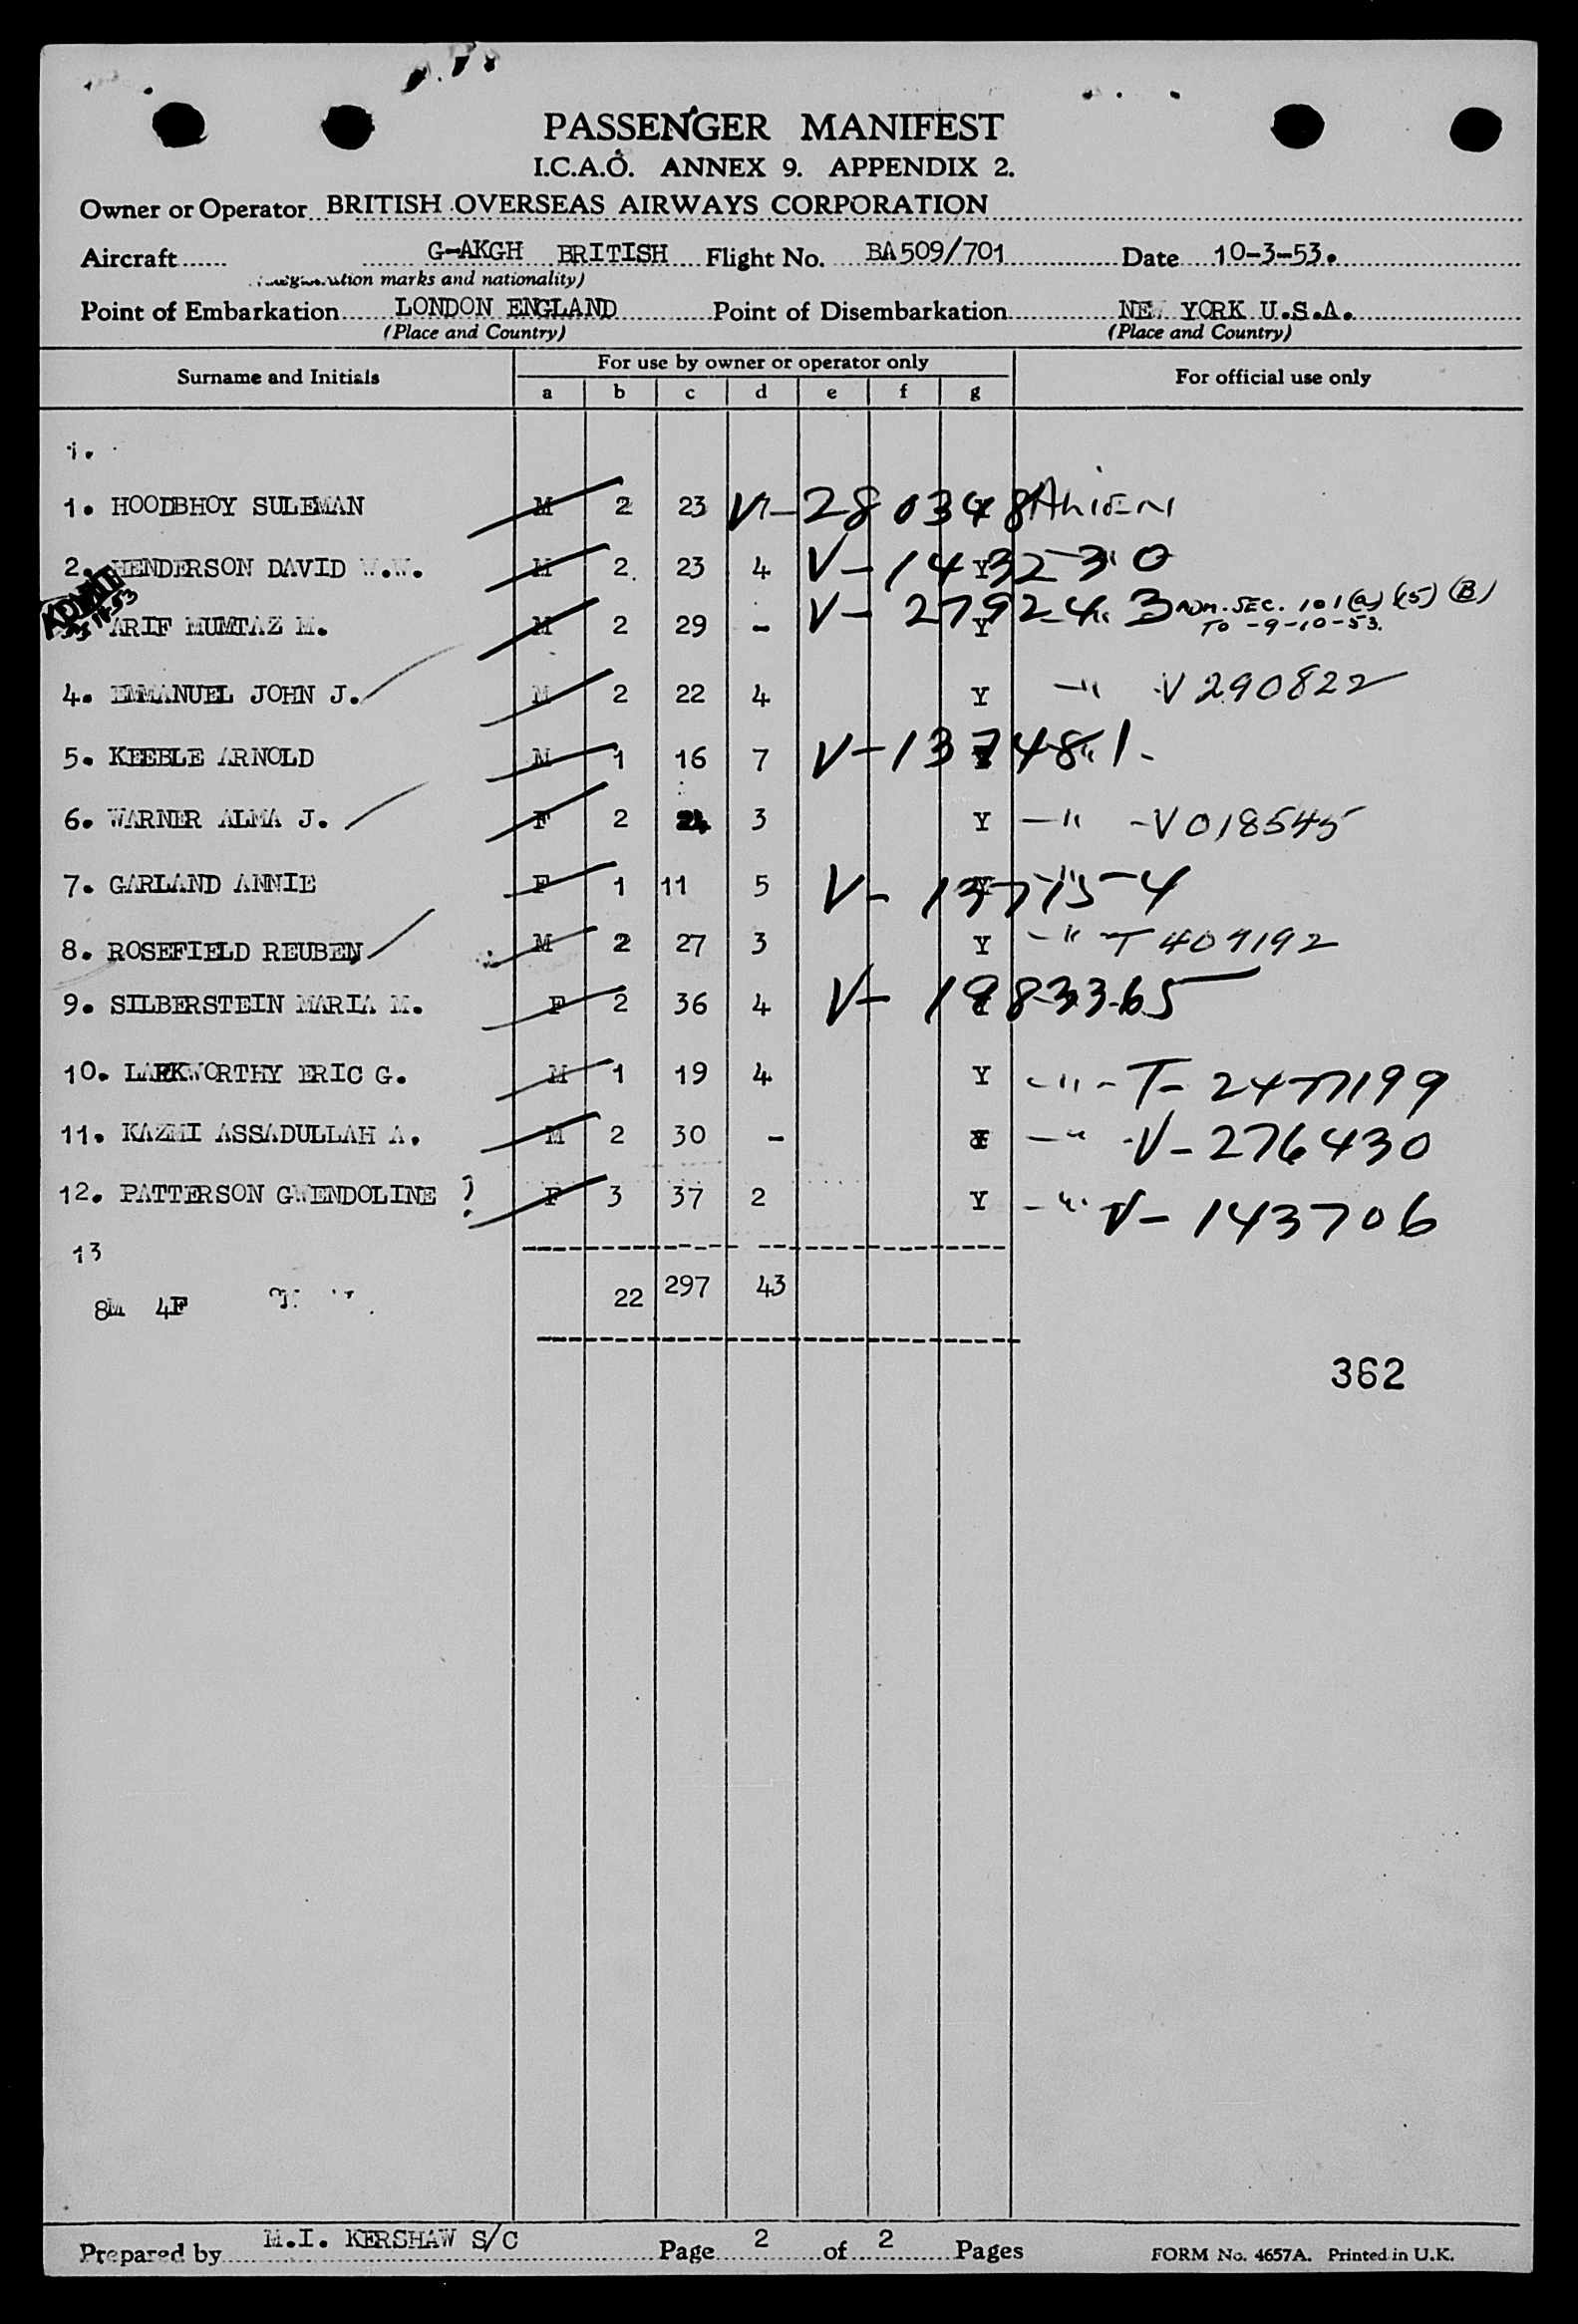 PASSENGER MANIFEST
I.C.A.O. ANNEX 9. APPENDIX 2.
Owner or Operator BRITISH OVERSEAS AIRWAYS CORPORATION
Aircraft G-AKGH BRITISH Flight No. BA509/701 Date 10-3-53.
marks and nationality)
Point of Embarkation LONDON ENGLAND Point of Disembarkation NEW YORK U.S.A.
(Place and Country) (Place and Country)
Surname and Initials For use by owner or operator only For official use only
a b c d e f g
1.
1. HOODBHOY SULEMAN M 2 23 V-280348 ALIEN
2. HENDERSON DAVID W.W. M 2. 23 4 Y V-143230
ADMIT
ARIF MUMTAZ M. M 2 29 - Y V-279243 ADM. SEC. 101(a)(15)(B)
TO -9-10-53.
4. EMMANUEL JOHN J. M 2 22 4 Y -"- V290822
5. KEEBLE ARNOLD M 1 16 7 Y V-137481.
6. WARNER ALMA J. F 2 24 3 Y -" -V018545
7. GARLAND ANNIE F 1 11 5 Y V-137154
8. ROSEFIELD REUBEN M 2 27 3 Y -" T407192
9. SILBERSTEIN MARIA M. F 2 36 4 Y V-1983365
10. LARKWORTHY ERIC G. M 1 19 4 Y -"- T-2477199
11. KAZMI ASSADULLAH A. M 2 30 - Y -" -V-276430
12. PATTERSON GWENDOLINE ? F 3 37 2 Y -" V-143706
13
8M 4F 22 297 43
362
Prepared by M.I. KERSHAW S/C Page 2 of 2 Pages FORM No. 4657A. Printed in U.K.